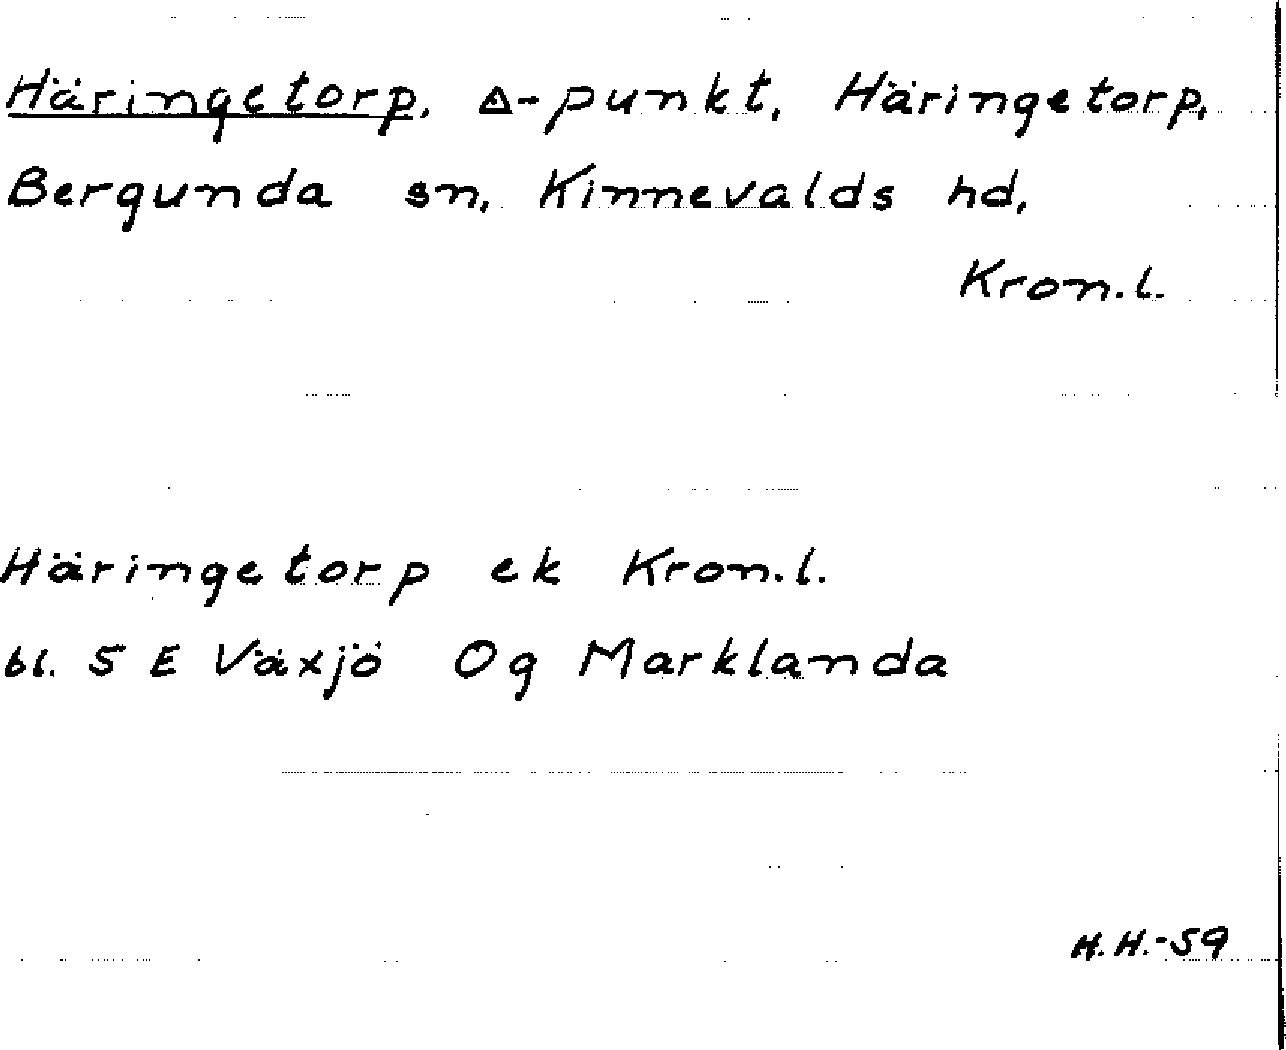 Häringetorp, △-punkt, Häringetorp,
Bergunda sn, Kinnevalds hd,
Kron.l.
Häringetorp ek Kron.l.
bl. 5 E Växjö Og Marklanda
H.H.-59